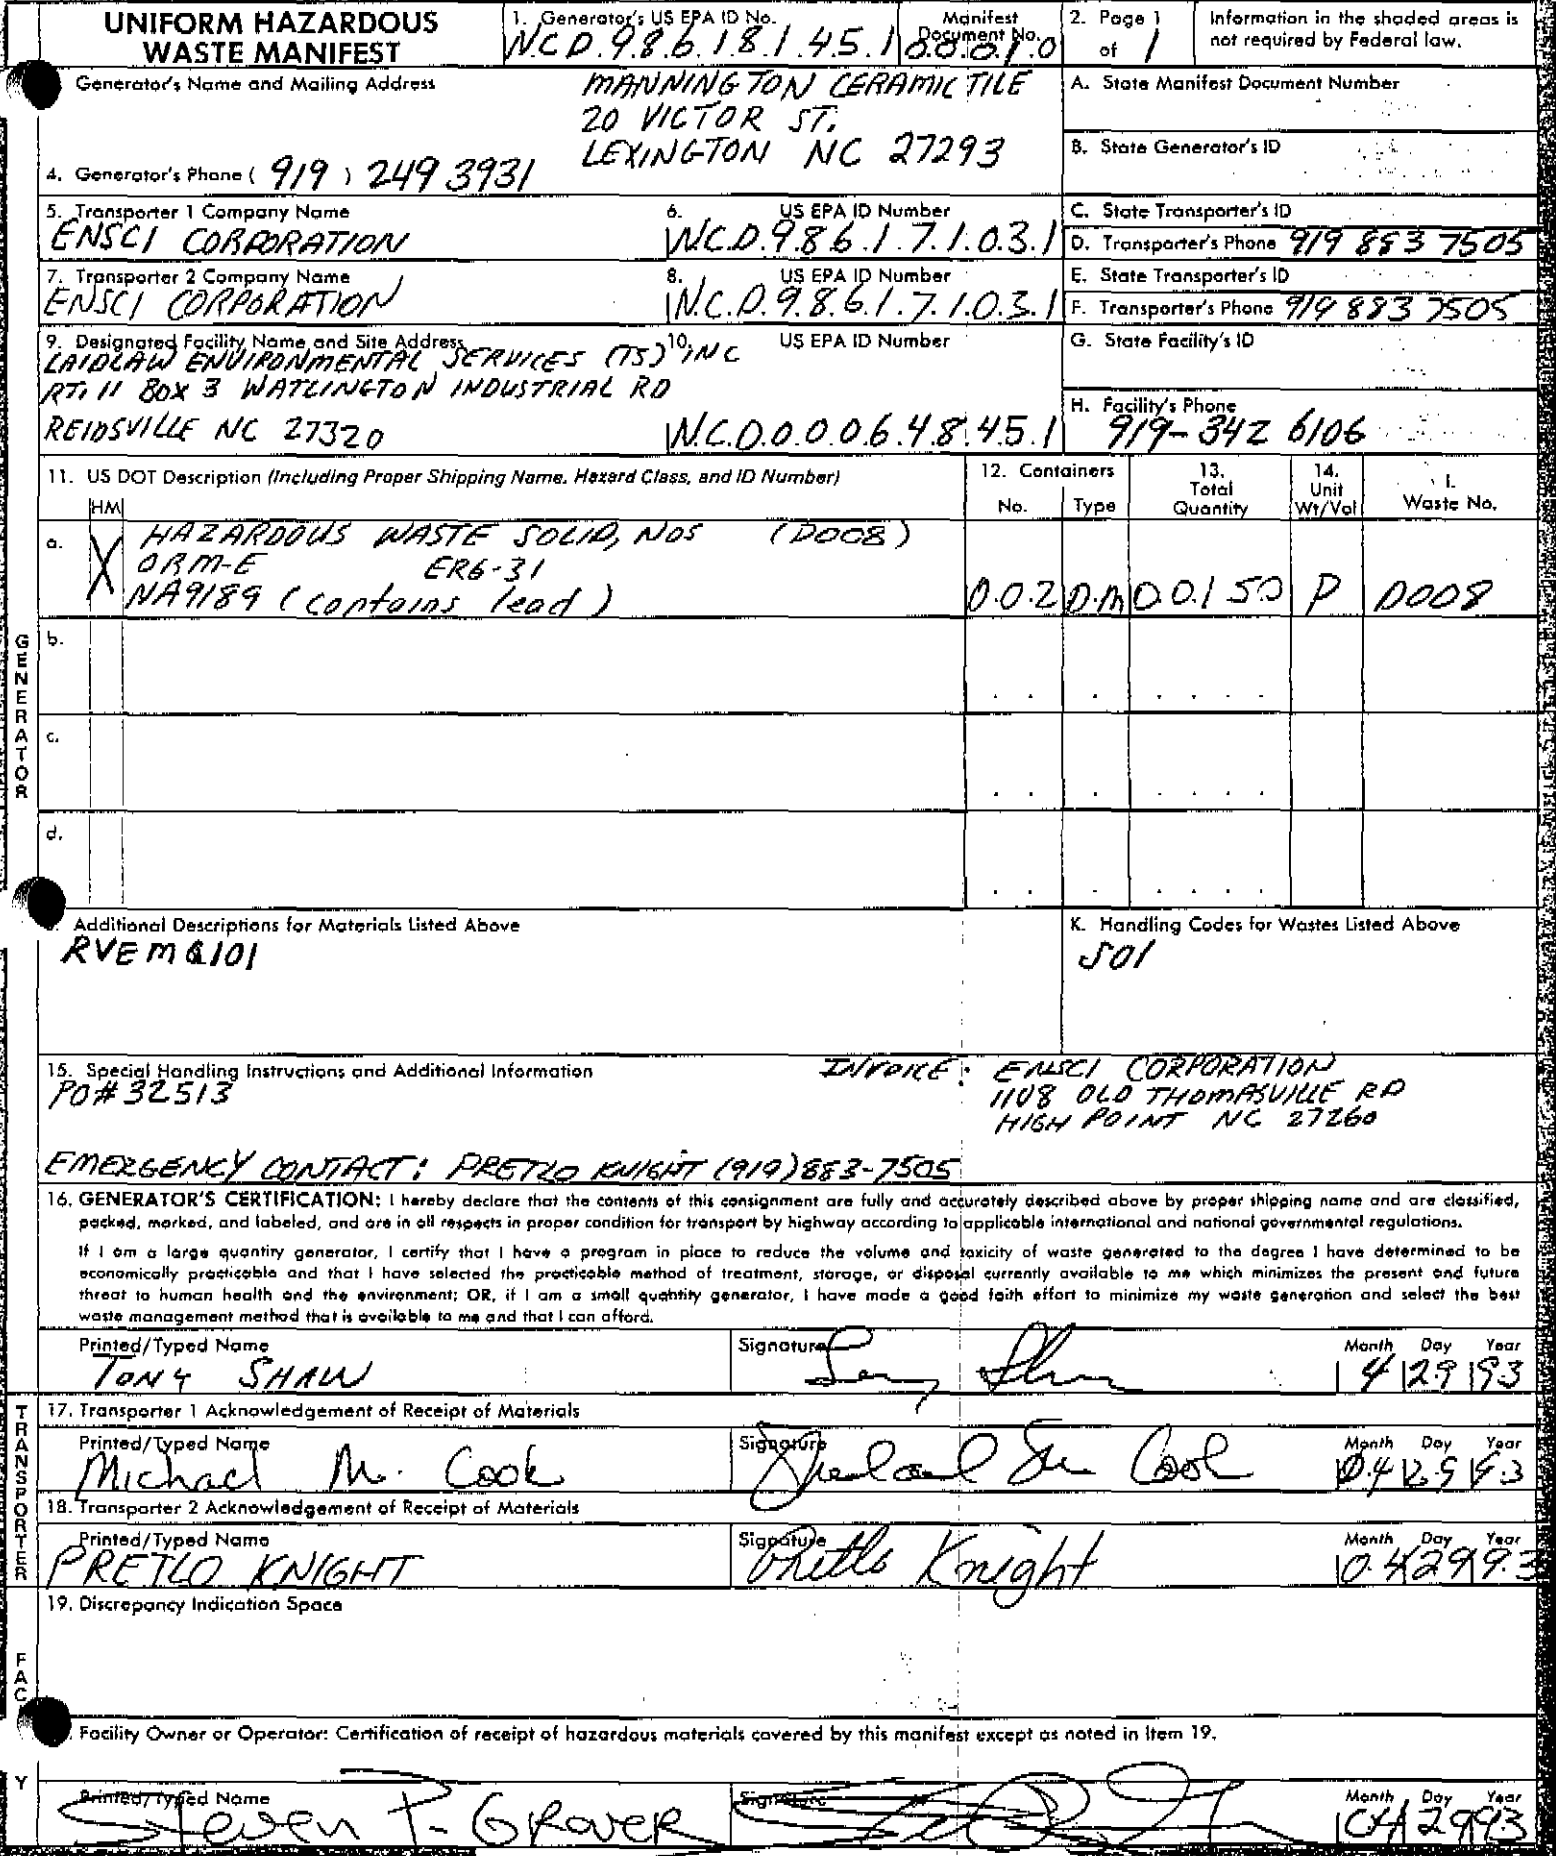 UNIFORM HAZARDOUS WASTE MANIFEST
1. Generator's US EPA ID No.
N.C.D.9.8.6.1.8.1.4.5.1
Manifest Document No.
0.0.0.1.0
2. Page 1 of 1
Information in the shaded areas is not required by Federal law.
Generator's Name and Mailing Address
MANNINGTON CERAMIC TILE
20 VICTOR ST.
LEXINGTON NC 27293
4. Generator's Phone ( 919 ) 249 3931
A. State Manifest Document Number
B. State Generator's ID
5. Transporter 1 Company Name
ENSCI CORPORATION
6. US EPA ID Number
N.C.D.9.8.6.1.7.1.0.3.1
C. State Transporter's ID
D. Transporter's Phone 919 883 7505
7. Transporter 2 Company Name
ENSCI CORPORATION
8. US EPA ID Number
N.C.D.9.8.6.1.7.1.0.3.1
E. State Transporter's ID
F. Transporter's Phone 919 883 7505
9. Designated Facility Name and Site Address
10. US EPA ID Number
LAIDLAW ENVIRONMENTAL SERVICES (TS) INC
RT. 11 BOX 3 WATLINGTON INDUSTRIAL RD
REIDSVILLE NC 27320
N.C.D.0.0.0.6.4.8.4.5.1
G. State Facility's ID
H. Facility's Phone
919-342 6106
11. US DOT Description (Including Proper Shipping Name, Hazard Class, and ID Number)
HM
12. Containers
No. Type
13. Total Quantity
14. Unit Wt/Vol
I. Waste No.
a. X HAZARDOUS WASTE SOLID, NOS (D008)
ORM-E ERG-31
NA9189 (contains lead) 0.0.2 D.M 0 0.1 5.0 P D008
b.
c.
d.
GENERATOR
Additional Descriptions for Materials Listed Above
RVEMQ101
K. Handling Codes for Wastes Listed Above
S01
15. Special Handling Instructions and Additional Information
PO# 32513
INVOICE: ENSCI CORPORATION
1108 OLD THOMASVILLE RD
HIGH POINT NC 27260
EMERGENCY CONTACT: PRETLO KNIGHT (919) 883-7505
16. GENERATOR'S CERTIFICATION: I hereby declare that the contents of this consignment are fully and accurately described above by proper shipping name and are classified,
packed, marked, and labeled, and are in all respects in proper condition for transport by highway according to applicable international and national governmental regulations.
If I am a large quantity generator, I certify that I have a program in place to reduce the volume and toxicity of waste generated to the degree I have determined to be
economically practicable and that I have selected the practicable method of treatment, storage, or disposal currently available to me which minimizes the present and future
threat to human health and the environment; OR, if I am a small quantity generator, I have made a good faith effort to minimize my waste generation and select the best
waste management method that is available to me and that I can afford.
Printed/Typed Name
TONY SHAW
Signature
Month Day Year
4 29 93
TRANSPORTER
17. Transporter 1 Acknowledgement of Receipt of Materials
Printed/Typed Name
Michael M. Cook
Signature
Cook
Month Day Year
0.4 2.9 9.3
18. Transporter 2 Acknowledgement of Receipt of Materials
Printed/Typed Name
PRETLO KNIGHT
Signature
Pretlo Knight
Month Day Year
0.4 29 9.3
19. Discrepancy Indication Space
FAC
Y
Facility Owner or Operator: Certification of receipt of hazardous materials covered by this manifest except as noted in Item 19.
Printed/Typed Name
Steven P. Grover
Signature
Month Day Year
04 29 93